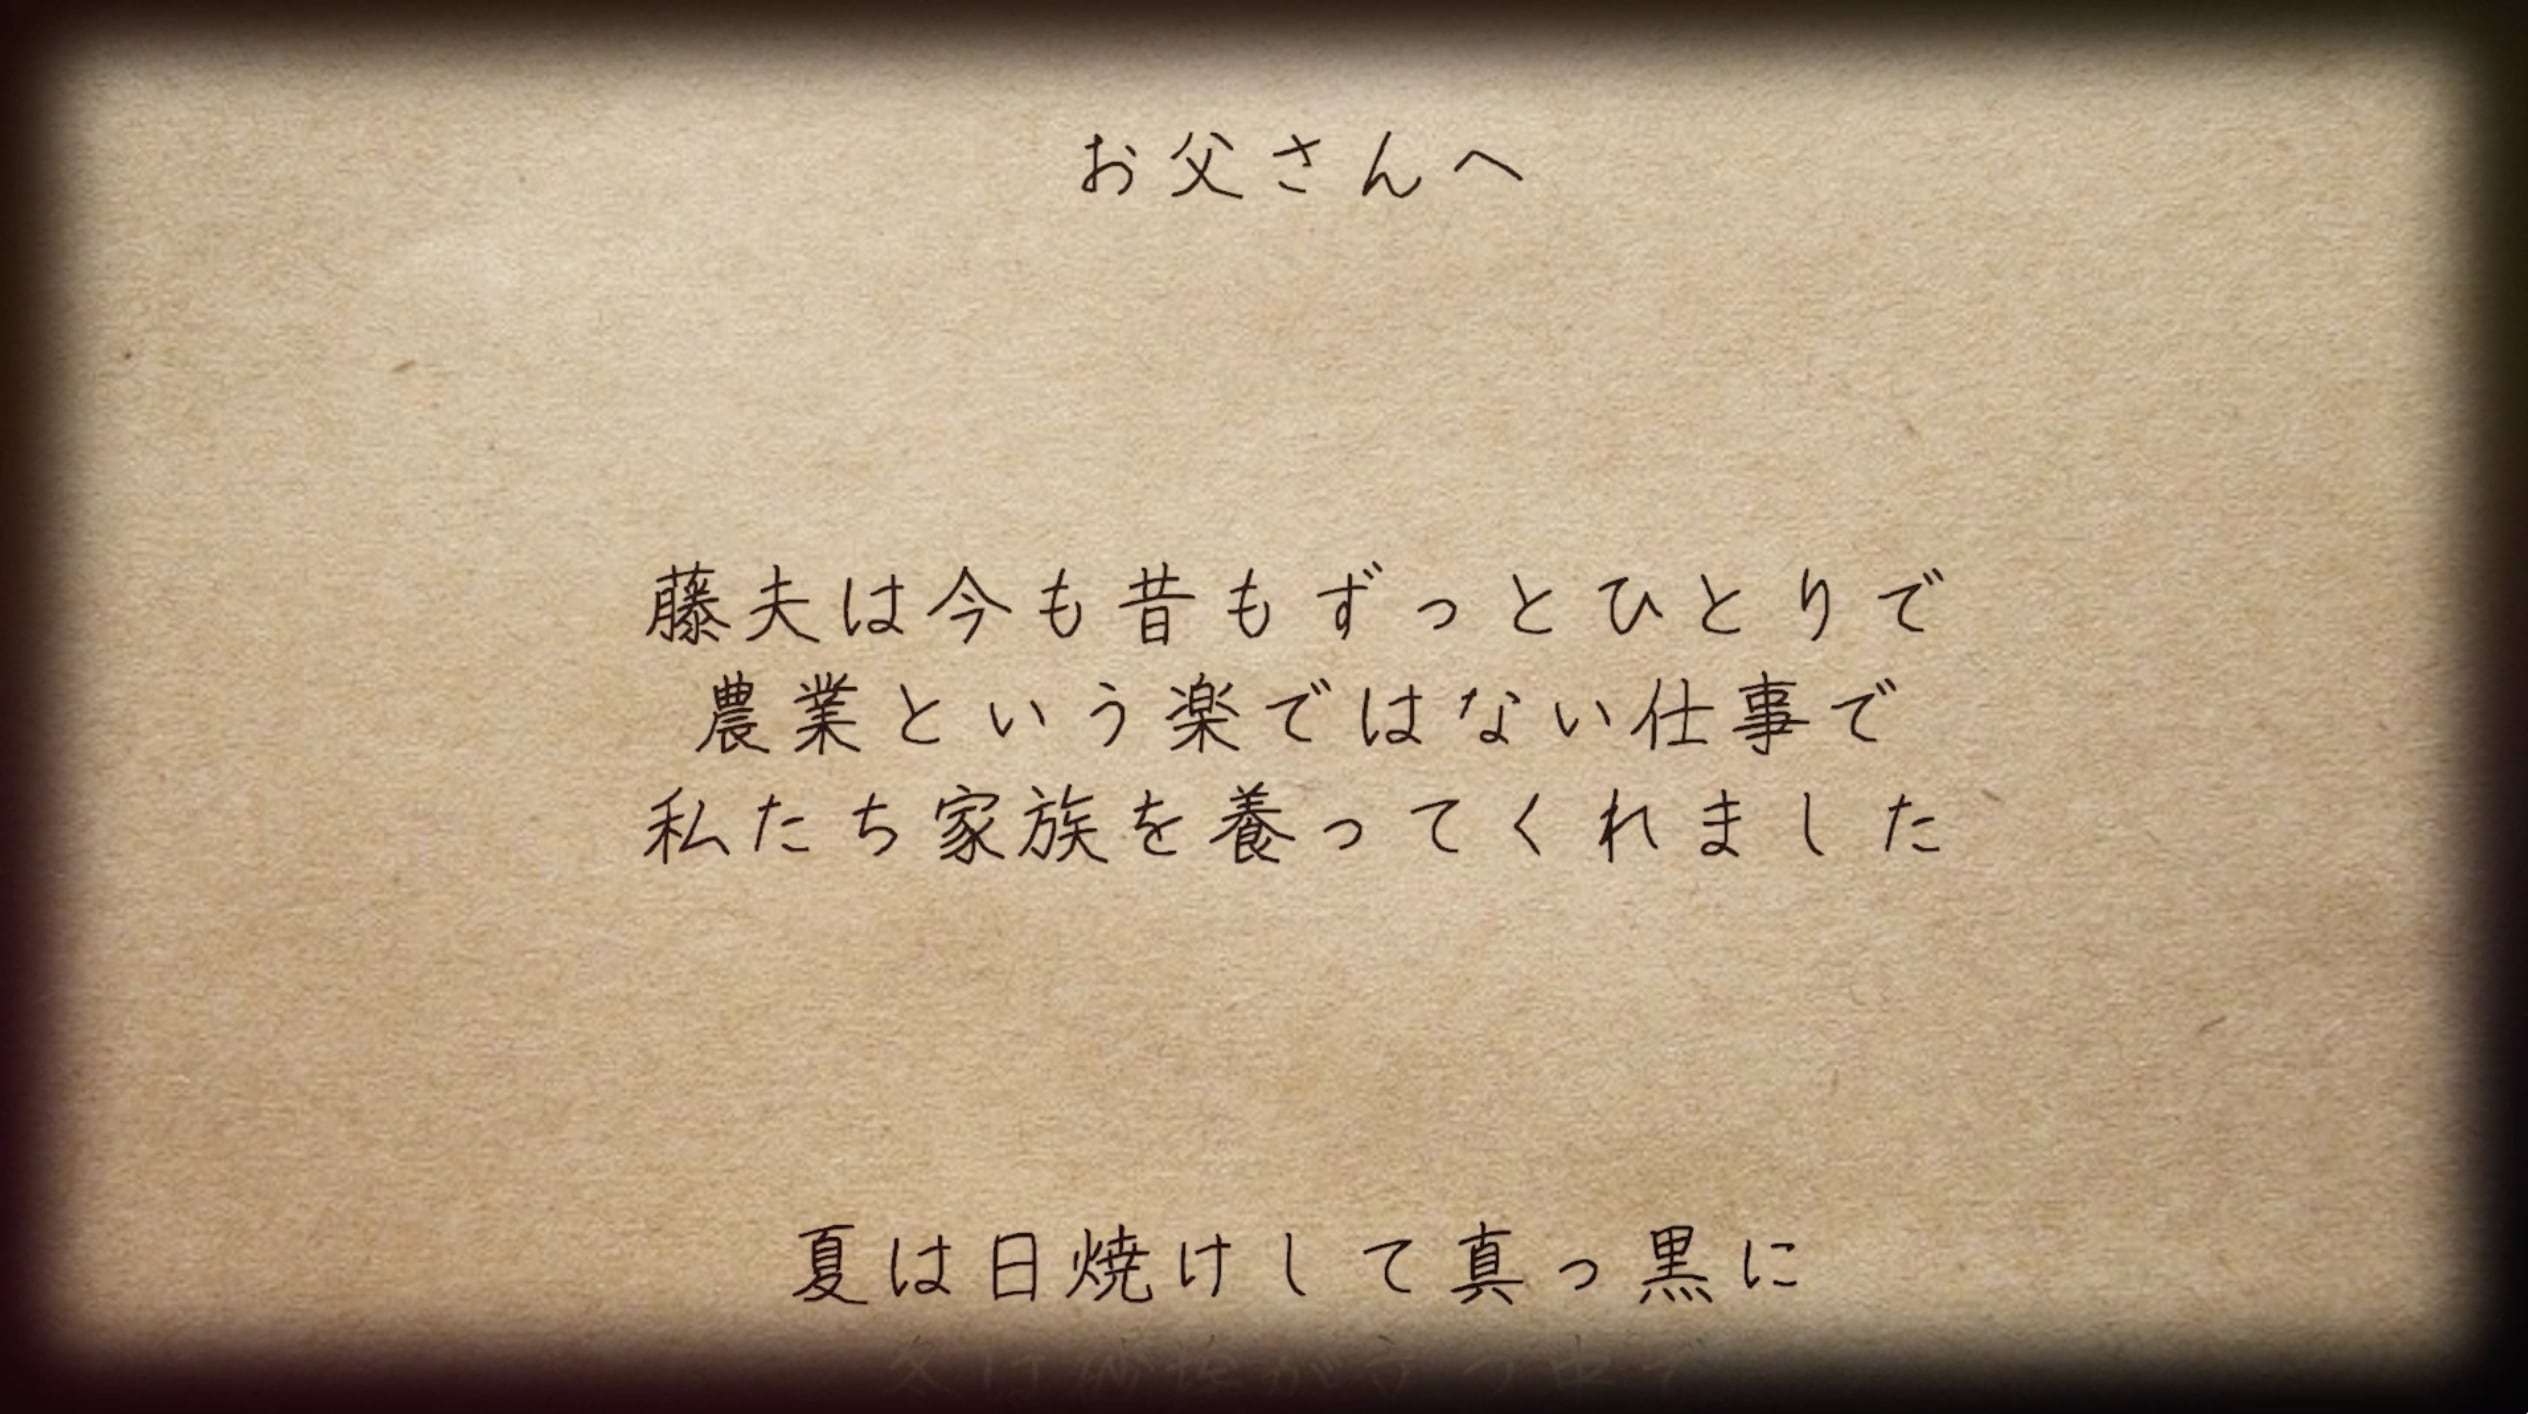 お父さんへ
藤夫は今も昔もずっとひとりで
農業という楽ではない仕事で
私たち家族を養ってくれました
夏は日焼けして真っ黒に